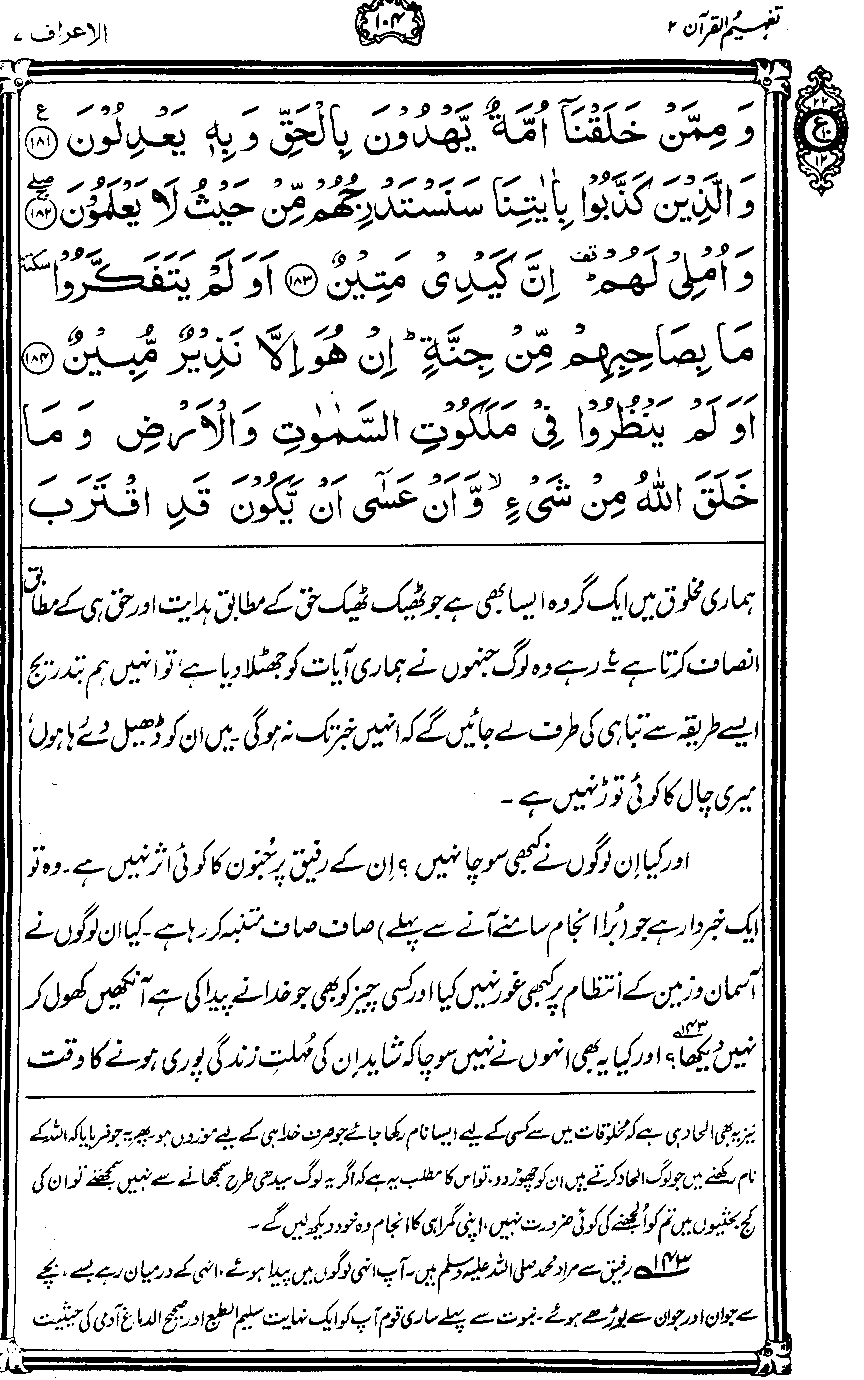 تفہیم القرآن ۲
۱۰۴
الاعراف ۷
وَمِمَّنْ خَلَقْنَآ اُمَّةٌ يَّهْدُوْنَ بِالْحَقِّ وَبِهٖ يَعْدِلُوْنَ ﴿۱۸۱﴾ ع
وَالَّذِيْنَ كَذَّبُوْا بِاٰيٰتِنَا سَنَسْتَدْرِجُهُمْ مِّنْ حَيْثُ لَا يَعْلَمُوْنَ ﴿۱۸۲﴾
وَاُمْلِيْ لَهُمْ ؕ اِنَّ كَيْدِيْ مَتِيْنٌ ﴿۱۸۳﴾ اَوَلَمْ يَتَفَكَّرُوْا سكتة
مَا بِصَاحِبِهِمْ مِّنْ جِنَّةٍ ؕ اِنْ هُوَ اِلَّا نَذِيْرٌ مُّبِيْنٌ ﴿۱۸۴﴾
اَوَلَمْ يَنْظُرُوْا فِيْ مَلَكُوْتِ السَّمٰوٰتِ وَالْاَرْضِ وَمَا
خَلَقَ اللّٰهُ مِنْ شَيْءٍ ۙ وَّاَنْ عَسٰٓى اَنْ يَّكُوْنَ قَدِ اقْتَرَبَ
۲۲
ع ۱۰
۱۲
ہماری مخلوق میں ایک گروہ ایسا بھی ہے جو ٹھیک ٹھیک حق کے مطابق ہدایت اور حق ہی کے مطابق
انصاف کرتا ہے ع رہے وہ لوگ جنہوں نے ہماری آیات کو جھٹلا دیا ہے، تو انہیں ہم بتدریج
ایسے طریقہ سے تباہی کی طرف لے جائیں گے کہ انہیں خبر تک نہ ہوگی۔ میں ان کو ڈھیل دے رہا ہوں،
میری چال کا کوئی توڑ نہیں ہے۔
اور کیا اِن لوگوں نے کبھی سوچا نہیں؟ اِن کے رفیق پر جُنون کا کوئی اثر نہیں ہے۔ وہ تو
ایک خبردار ہے جو (بُرا انجام سامنے آنے سے پہلے) صاف صاف متنبہ کر رہا ہے۔ کیا ان لوگوں نے
آسمان و زمین کے انتظام پر کبھی غور نہیں کیا اور کسی چیز کو بھی جو خدا نے پیدا کی ہے آنکھیں کھول کر
نہیں دیکھا؟۱۴۳ اور کیا یہ بھی انہوں نے نہیں سوچا کہ شاید اِن کی مُہلتِ زندگی پوری ہونے کا وقت
نیز یہ بھی الحاد ہی ہے کہ مخلوقات میں سے کسی کے لیے ایسا نام رکھا جائے جو صرف خدا ہی کے لیے موزوں ہو۔ پھر یہ جو فرمایا کہ اللہ کے
نام رکھنے میں جو لوگ الحاد کرتے ہیں ان کو چھوڑ دو، تو اس کا مطلب یہ ہے کہ اگر یہ لوگ سیدھی طرح سمجھانے سے نہیں سمجھتے تو ان کی
کج بحثیوں میں تم کو اُلجھنے کی کوئی ضرورت نہیں، اپنی گمراہی کا انجام وہ خود دیکھ لیں گے۔
۱۴۳ رفیق سے مراد محمد صلی اللہ علیہ وسلم ہیں۔ آپ انہی لوگوں میں پیدا ہوئے، انہی کے درمیان رہے بسے، بچے
سے جوان اور جوان سے بوڑھے ہوئے۔ نبوت سے پہلے ساری قوم آپ کو ایک نہایت سلیم الطبع اور صحیح الدماغ آدمی کی حیثیت